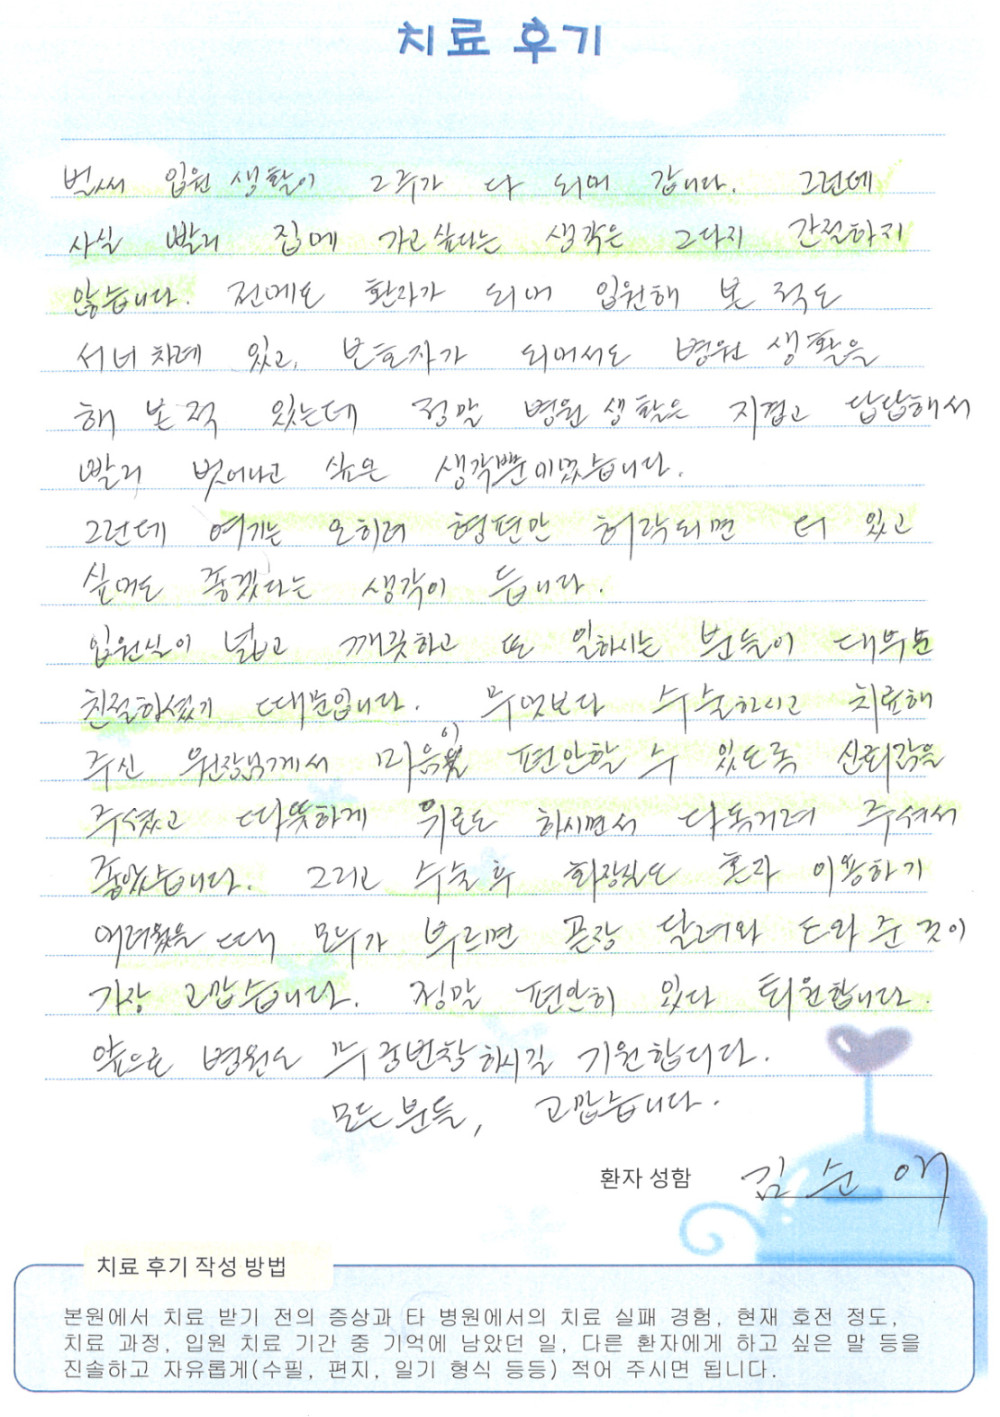 치료 후기
벌써 입원 생활이 2주가 다 되어 갑니다. 그런데
사실 빨리 집에 가고 싶다는 생각은 그다지 간절하지
않습니다. 전에도 환자가 되어 입원해 본 적도
서너 차례 있고, 보호자가 되어서도 병원 생활을
해 본 적 있는데 정말 병원 생활은 지겹고 답답해서
빨리 벗어나고 싶은 생각뿐이었습니다.
그런데 여기는 오히려 형편만 허락되면 더 있고
싶어도 좋겠다는 생각이 듭니다.
입원실이 넓고 깨끗하고 또 일하시는 분들이 대부분
친절하셨기 때문입니다. 무엇보다 수술하시고 치료해
주신 원장님께서 마음이 편안할 수 있도록 신뢰감을
주셨고 따뜻하게 위로도 하시면서 다독거려 주셔서
좋았습니다. 그리고 수술 후 화장실도 혼자 이용하기
어려웠을 때 모두가 부르면 곧장 달려와 도와 준 것이
가장 고맙습니다. 정말 편안히 있다 퇴원합니다.
앞으로 병원도 무궁번창하시길 기원합니다.
모든 분들, 고맙습니다.
환자 성함 김순애
치료 후기 작성 방법
본원에서 치료 받기 전의 증상과 타 병원에서의 치료 실패 경험, 현재 호전 정도,
치료 과정, 입원 치료 기간 중 기억에 남았던 일, 다른 환자에게 하고 싶은 말 등을
진솔하고 자유롭게(수필, 편지, 일기 형식 등등) 적어 주시면 됩니다.